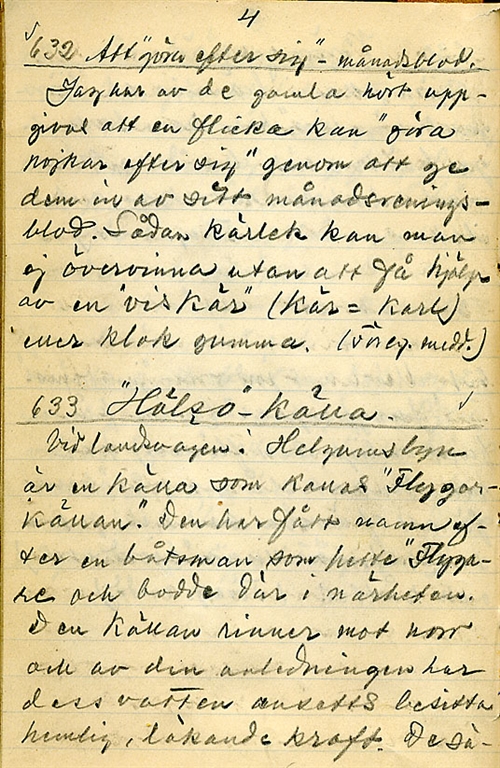 4
632 Att "göra efter sig" - månadsblod.
Jag har av de gamla hört upp-
givas att en flicka kan "göra
pojkar efter sig" genom att ge
dem in av sitt månadsrenings-
blod. Sådan kärlek kan man
ej övervinna utan att få hjälp
av en "vis kär" (kär = karl)
eller klok gumma. (Föreg. medd.)
633 "Hälso"-källa.
Vid landsvägen i Helgumsbyn
är en källa som kallas "Flygar-
källan." Den har fått namn ef-
ter en båtsman som hette "Flyga-
re och bodde där i närheten.
Den källan rinner mot norr
och av den anledningen har
dess vatten ansetts besitta
hemlig, läkande kraft. De sä-